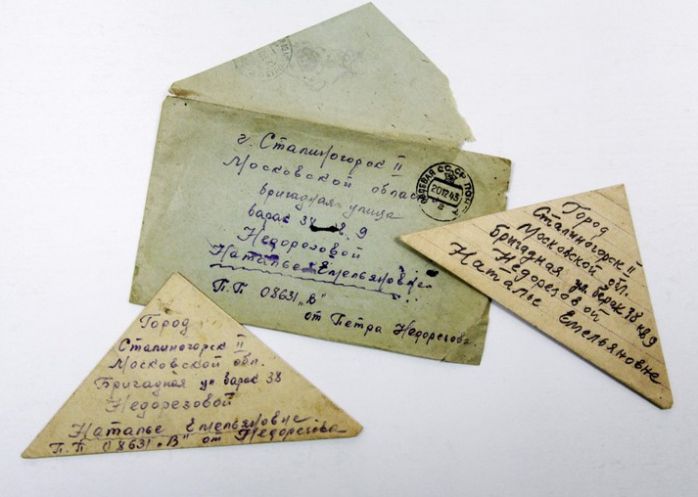 г. Сталиногорск II
Московской област
бригадная улица
барак 38 кв. 9
Недорезовой
Наталье Емельяновне
П.П 08631 „В"
от Петра Недорезова
ПОЛЕВАЯ СССР ПОЧТА
201243
Город
Сталиногорск II
Московской обл.
Бригадная ул барак 38 кв 9
Недорезовой
Наталье Емельяновне
Город
Сталиногорск II
Московской обл.
Бригадная ул барак 38
Недорезовой
Наталье Емельяновне.
П.П 08631 „В" от Недорезова